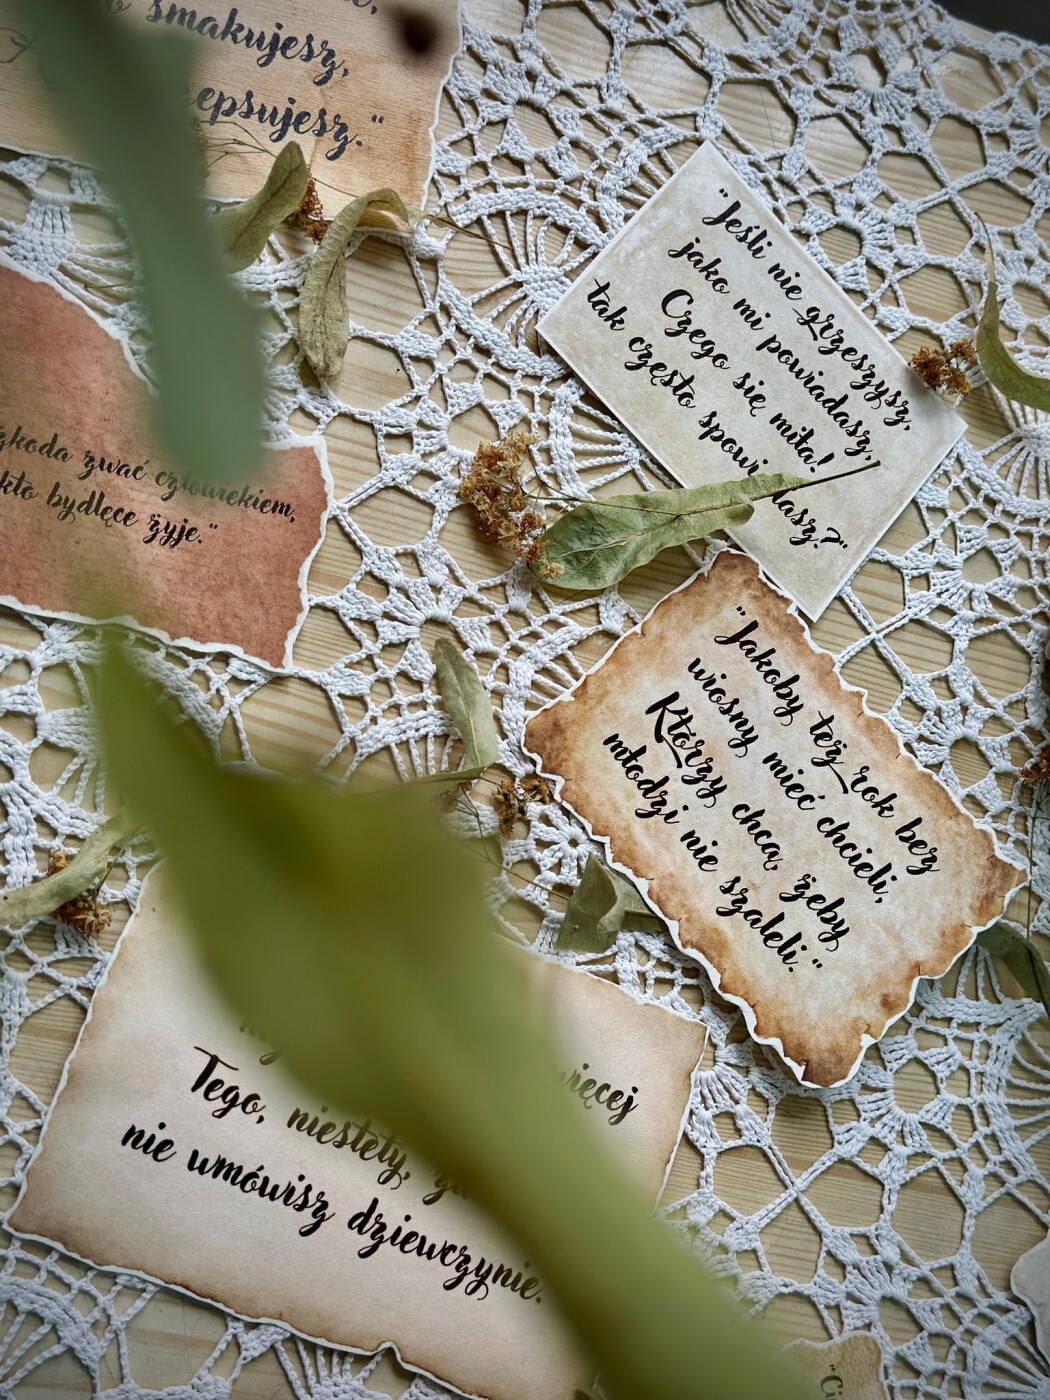 smakujesz,
epsujesz."
"Jeśli nie grzeszysz,
jako mi powiadasz,
Czego się miła!
tak często spowi dasz?"
zkoda zwać człowiekiem,
kto bydlęce żyje."
"Jakoby też rok bez
wiosny mieć chcieli,
Którzy chcą, żeby
młodzi nie szaleli."
więcej
Tego, niestety,
nie wmówisz dziewczynie.